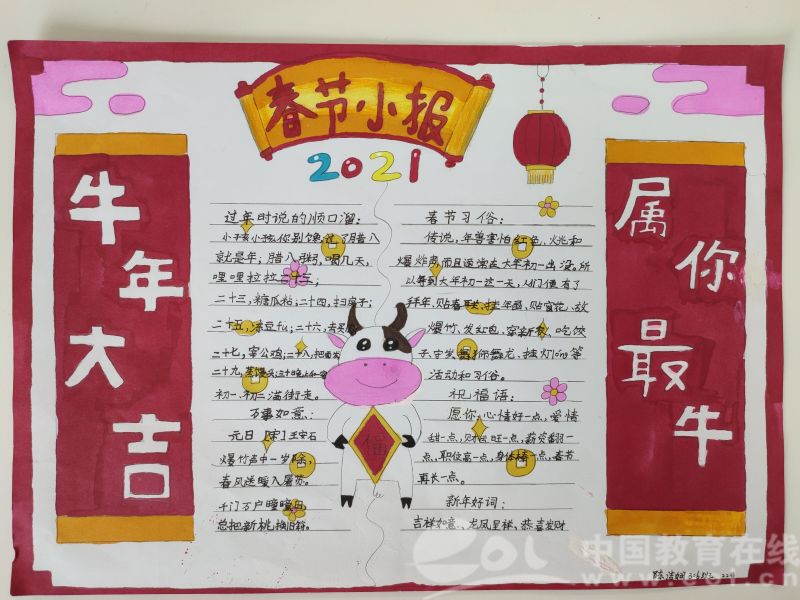 春节小报
2021
牛年大吉
过年时说的顺口溜:
小孩小孩你别馋,过了腊八
就是年;腊八粥,喝几天,
哩哩拉拉二十三;
二十三,糖瓜粘;二十四,扫房子;
二十五,冻豆
二十六,去买
二十七,宰公鸡;二十八,把面发
二十九,蒸馒头;三十晚上
初一、初二满街走。
万事如意:
元日 [宋]王安石
爆竹声中一岁除,
春风送暖入屠苏。
千门万户曈曈日,
总把新桃换旧符。
福
春节习俗:
传说,年兽害怕红色、火光和
爆炸声,而且通常在大年初一出没,所
以每到大年初一这一天,人们便有了
拜年、贴春联、挂年画、贴窗花、放
爆竹、发红包、穿新衣、吃饺
子、守岁、舞狮舞龙、挂灯笼等
活动和习俗。
祝福语:
愿你:心情好一点,爱情
甜一点,财旺一点,薪资翻一
点,职位高一点,身体棒一点,春节
再长一点。
新年好词:
吉祥如意、龙凤呈祥、恭喜发财
属你最牛
中国教育在线
www.eol.cn